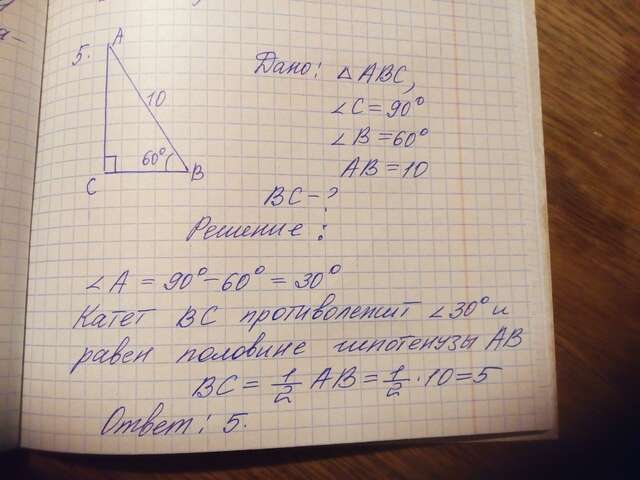 5.
A
10
60°
C
B
Дано: △ABC,
∠C = 90°
∠B = 60°
AB = 10
BC - ?
Решение:
∠A = 90° - 60° = 30°
Катет BC противолежит ∠30° и
равен половине гипотенузы AB
BC = 1/2 AB = 1/2 · 10 = 5
Ответ: 5.